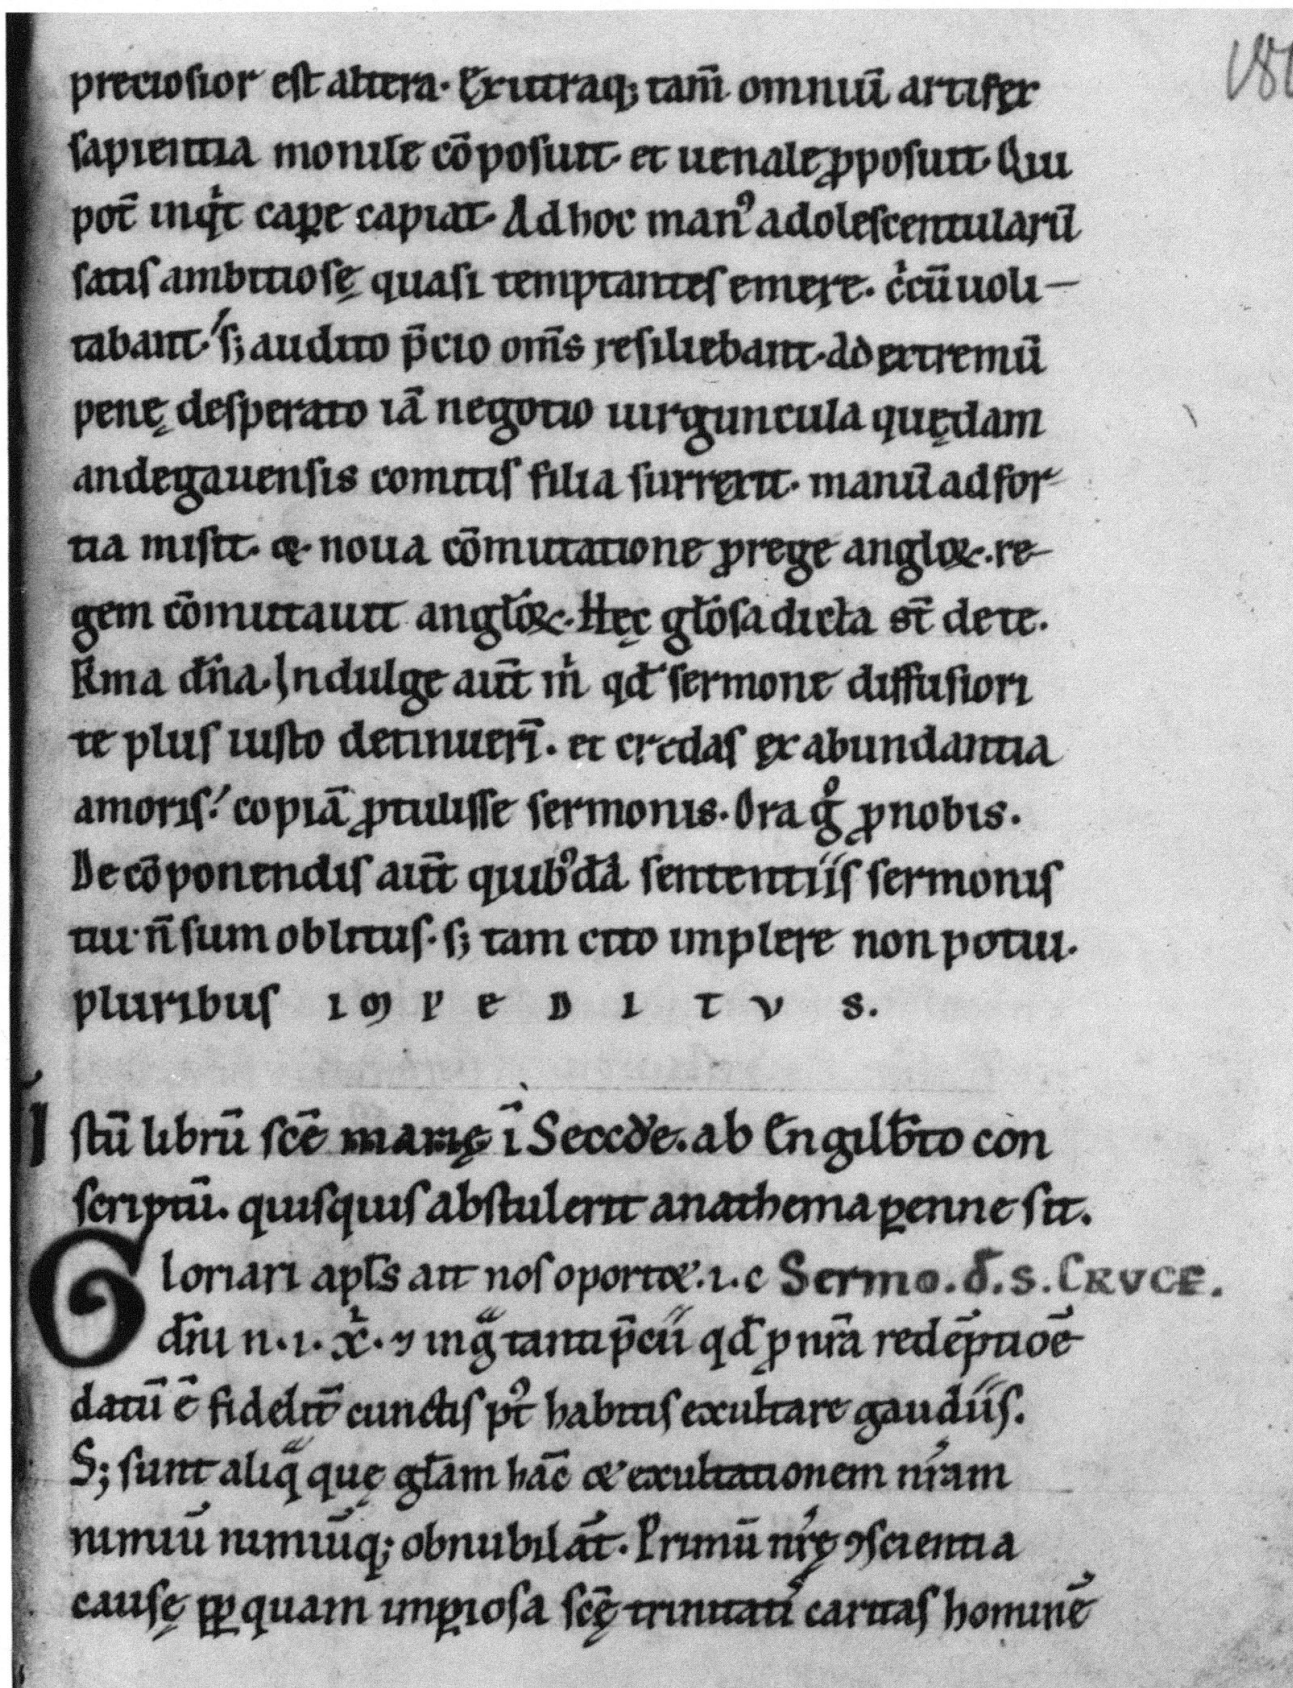 preciosior est altera. Ex utraq; tam̄ omniū artifex
sapientia monile cōposuit. et uenale ꝓposuit. Qui
pot̄ inqͥt caꝑe capiat. Ad hoc man᾽ adolescentularū
satis ambitiosę quasi temptantes emere. cͥcūuoli-
tabant. s; audito p̄cio om̄s resiliebant. ad extremū
penę desperato iā negotio uirguncula quędam
andegauensis comitis filia surrexit. manū ad for-
tia misit. & noua cōmutatione ꝓ rege angloꝝ. re-
gem cōmutauit angloꝝ. Hęc gl̄osa dicta st̄ de te.
Kma dn̄a. Indulge aut̄ mͥ qd̄ sermone diffusiori
te plus iusto detinuerī. et credas ex abundantia
amoris. copiā ꝓtulisse sermonis. Ora gͦ ꝓ nobis.
De cōponendis aut̄ quib᾽dā sententiis sermonis
tui n̄ sum oblitus. s; tam cito implere non potui.
pluribus I M P E D I T V S.
Istū librū scē marię ī Seccoƌe. ab Engilb̄to con
scriptū. quisquis abstulerit anathema ꝑenne sit.
Gloriari apl̄s ait nos oport&. i. c Sermo. d̄. s. CRVCE.
dn̄i n. i. x̄. ⁊ in gͣ tanti p̄cii qd̄ ꝓ nr̄a redēptiōe
datū ē fidelit̄ cunctis pt᾽ habitis exultare gaudiis.
S; sunt aliqͣ que gl̄am hāc & exultationem nr̄am
nimiū nimiūq; obnubilāt. Primū nr̄ę ꝯscientia
causę ꝓꝑ quam imꝑiosa scę̄ trinitatͥ caritas hominē